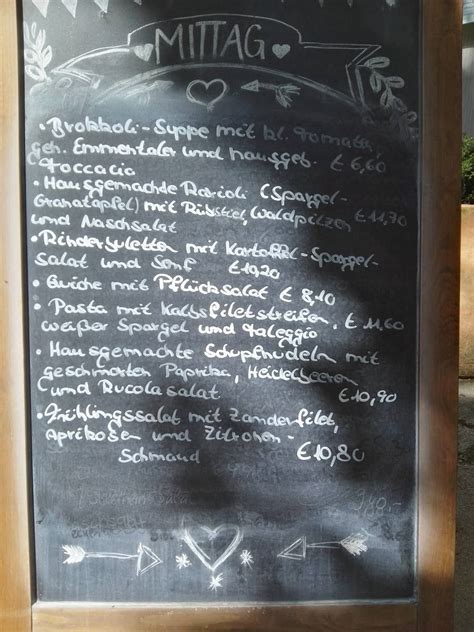 MITTAG
• Brokkoli-Suppe mit kl. Tomate,
geh. Emmentaler und hausgeb. € 6,60
Foccacia
• Hausgemachte Ravioli (Spargel-
Granatapfel) mit Rübstiel, Waldpilzen € 11,70
und Naschsalat
• Rindersuletten mit Kartoffel-Spargel-
salat und Senf € 10,20
• Quiche mit Pflücksalat € 8,10
• Pasta mit Kalbsfiletstreifen, € 11,60
weißer Spargel und Taleggio
• Hausgemachte Schupfnudeln mit
geschmorten Paprika, Heidelbeeren
und Rucolasalat € 10,90
• Frühlingssalat mit Zanderfilet,
Aprikosen und Zitronen-
Schmand €10,80